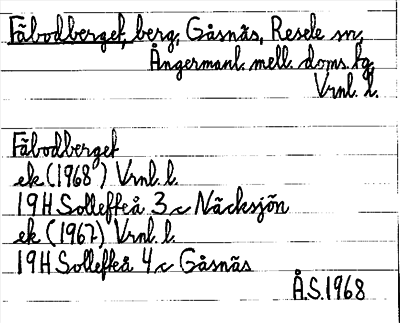 Fäbodberget, berg, Gåsnäs, Resele sn,
Ångermanl. mell. doms. fg.
Vrnl. l.
Fäbodberget
ek (1968) Vrnl. l.
19H Sollefteå 3 c Näcksjön
ek (1967) Vrnl. l.
19H Sollefteå 4 c Gåsnäs
Å.S. 1968